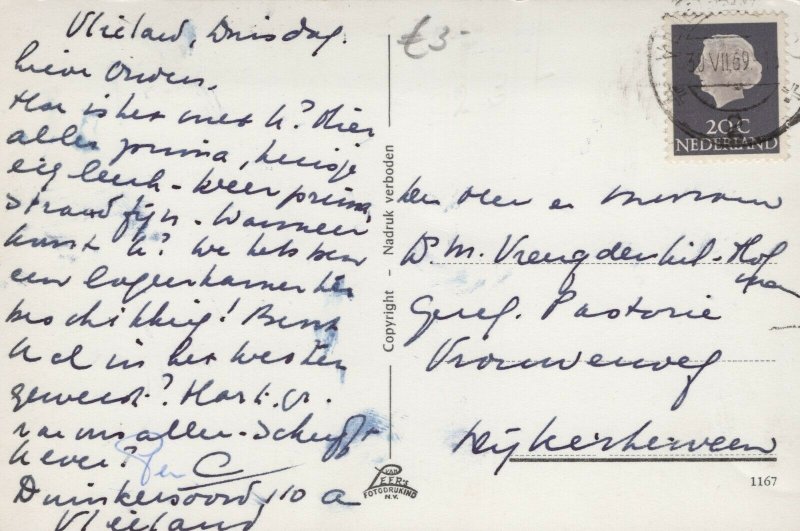 Vlieland, Dinsdag.
Lieve Ouders.
Hoe is het met U? Hier
alles prima, huisje
eig leuk - weer prima,
strand fijn. Wanneer
komt U? We hebben
een logeerkamer ter
beschikking! Bent
U al in het westen
geweest? Hart. gr.
van ons allen - Schrijft
U even?
C
Duinkersoord 110 a
Vlieland
£3-
30 VII 69
20 C
NEDERLAND
Den Heer en Mevrouw
D. M. Vreugdenhil - Hof
man
Geref. Pastorie
Vrouwenweg
Nijkerkerveen
Copyright - Nadruk verboden
VAN
LEER'S
FOTODRUKIND
N.V.
1167